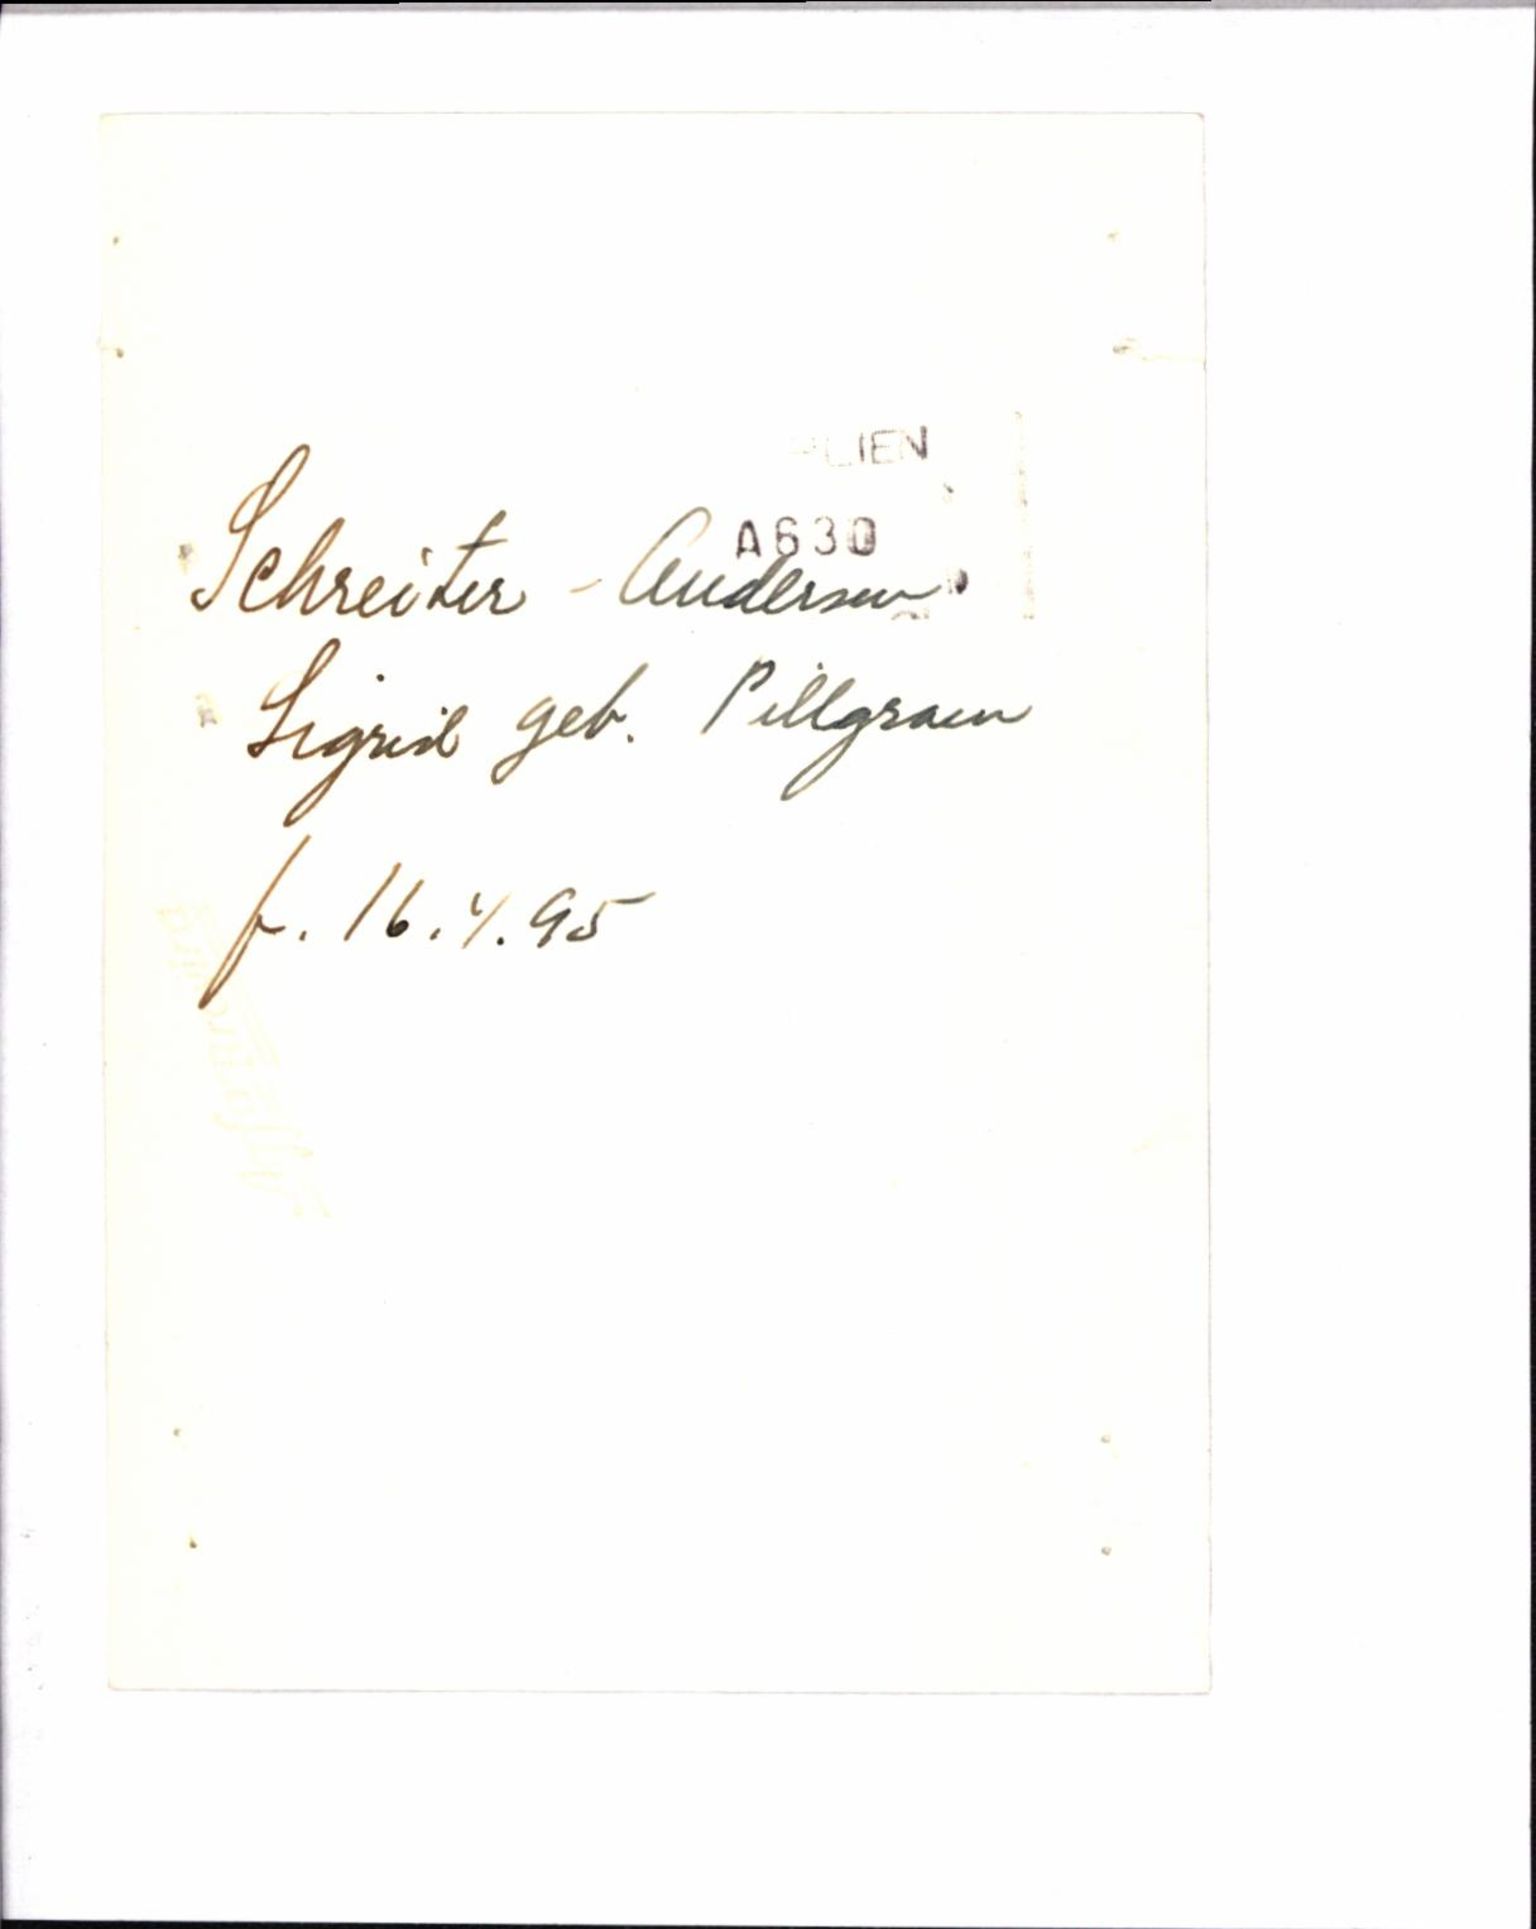 ALIEN
A630
Schreiter - Andersen
Sigrid geb. Pillgram
f. 16.4.95